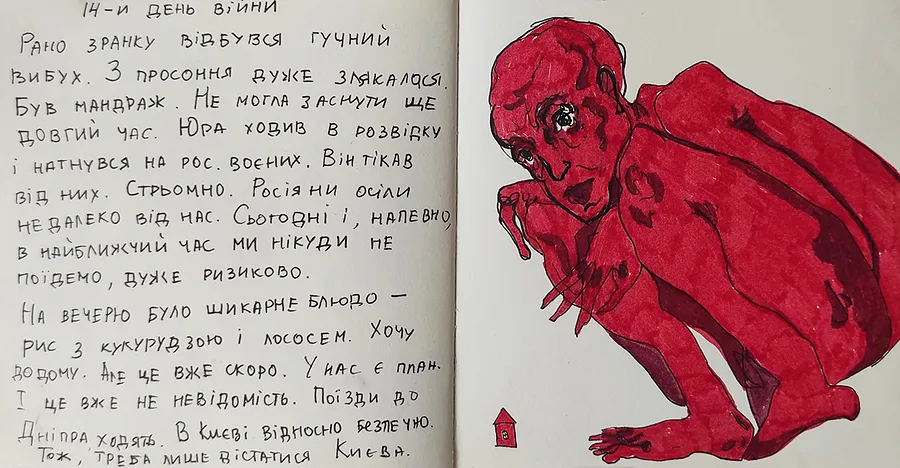 14-и день війни
Рано зранку відбувся гучний
вибух. З просоння дуже злякалася.
Був мандраж. Не могла заснути ще
довгий час. Юра ходив в розвідку
і натнувся на рос. воєних. Він тікав
від них. Стрьомно. Росіяни осіли
недалеко від нас. Сьогодні і, напевно,
в найближчий час ми нікуди не
поїдемо, дуже ризиково.
На вечерю було шикарне блюдо –
рис з кукурудзою і лососем. Хочу
додому. Але це вже скоро. У нас є план.
І це вже не невідомість. Поїзди до
Дніпра ходять. В Києві відносно безпечно.
Тож, треба лише дістатися Києва.